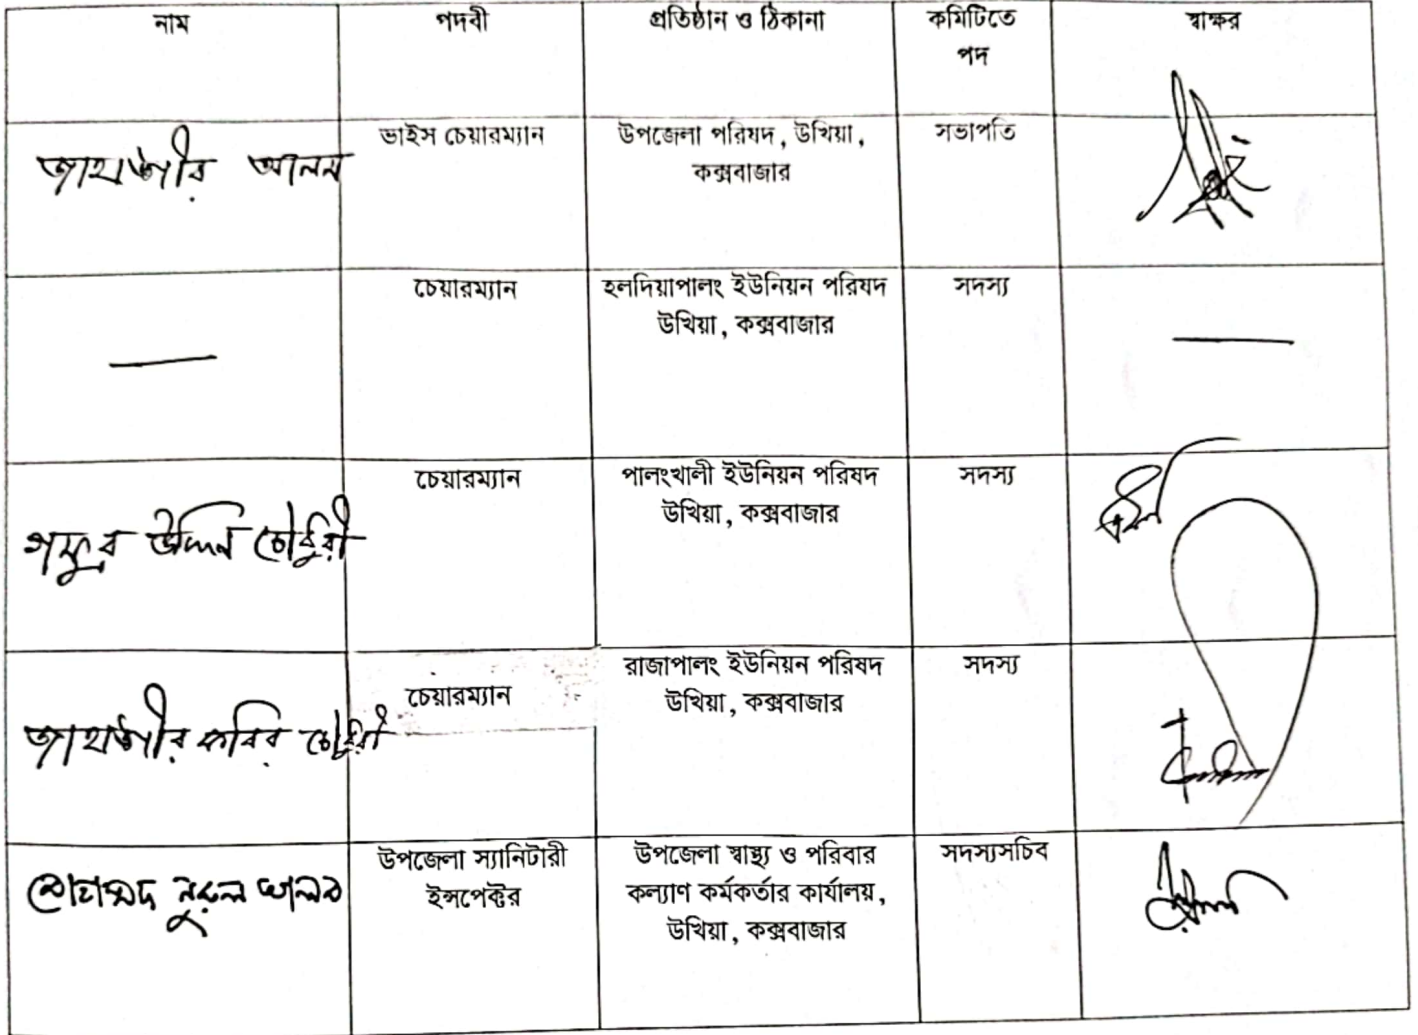 নাম
পদবী
প্রতিষ্ঠান ও ঠিকানা
কমিটিতে
পদ
স্বাক্ষর
জাহাঙ্গীর আলম
ভাইস চেয়ারম্যান
উপজেলা পরিষদ, উখিয়া,
কক্সবাজার
সভাপতি
—
চেয়ারম্যান
হলদিয়াপালং ইউনিয়ন পরিষদ
উখিয়া, কক্সবাজার
সদস্য
—
গফুর উদ্দিন চৌধুরী
চেয়ারম্যান
পালংখালী ইউনিয়ন পরিষদ
উখিয়া, কক্সবাজার
সদস্য
জাহাঙ্গীর কবির চৌধুরী
চেয়ারম্যান
রাজাপালং ইউনিয়ন পরিষদ
উখিয়া, কক্সবাজার
সদস্য
মোহাম্মদ নুরুল আলম
উপজেলা স্যানিটারী
ইন্সপেক্টর
উপজেলা স্বাস্থ্য ও পরিবার
কল্যাণ কর্মকর্তার কার্যালয়,
উখিয়া, কক্সবাজার
সদস্যসচিব